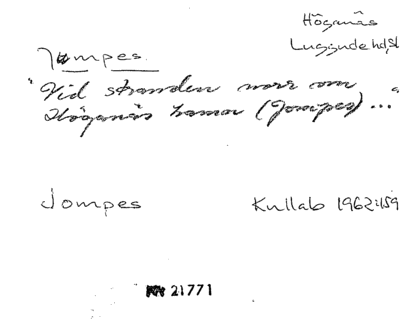 Höganäs
Luggude hd, Sk
Jompes.
"Vid stranden norr om
Höganäs hamn (Jompes) ...
Jompes
Kullab 1962:159
21771